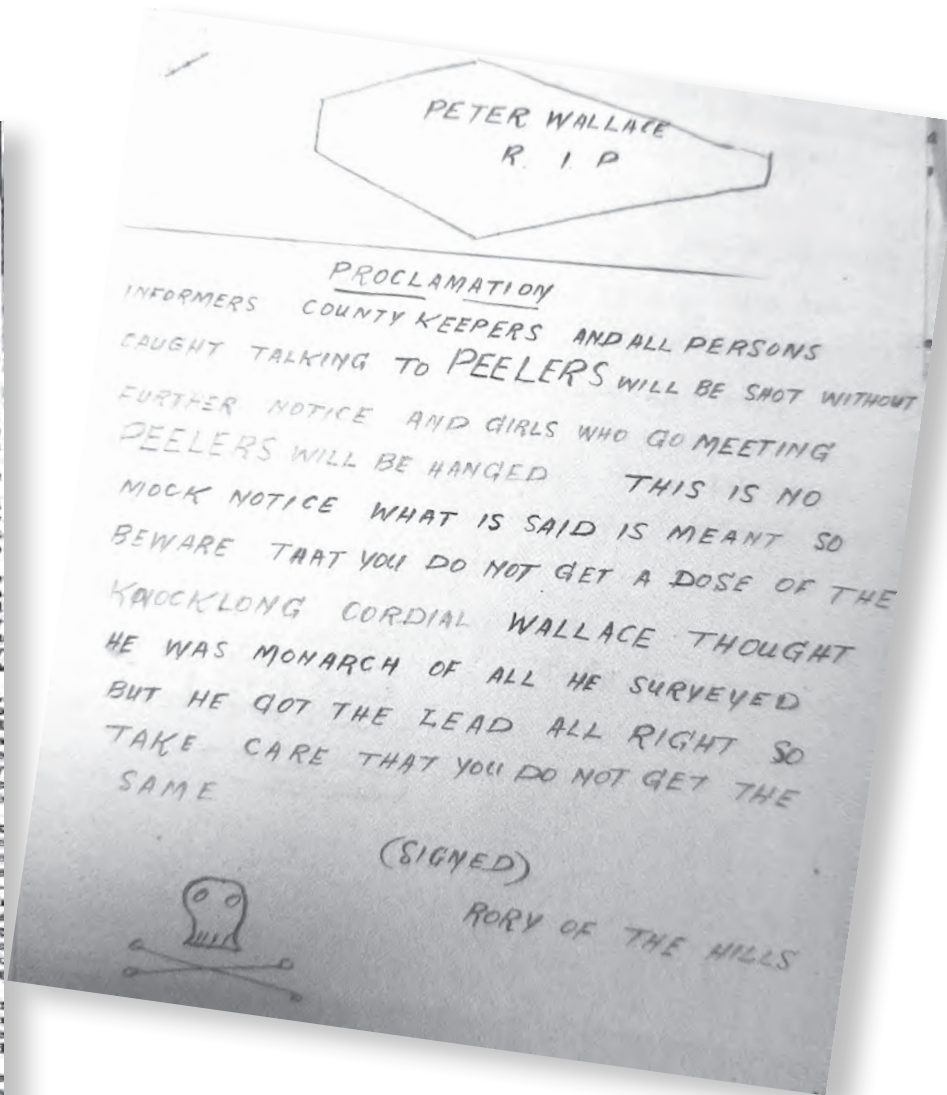 PETER WALLACE
R. I. P
PROCLAMATION
INFORMERS COUNTY KEEPERS AND ALL PERSONS
CAUGHT TALKING TO PEELERS WILL BE SHOT WITHOUT
FURTHER NOTICE AND GIRLS WHO GO MEETING
PEELERS WILL BE HANGED THIS IS NO
MOCK NOTICE WHAT IS SAID IS MEANT SO
BEWARE THAT YOU DO NOT GET A DOSE OF THE
KNOCKLONG CORDIAL WALLACE THOUGHT
HE WAS MONARCH OF ALL HE SURVEYED
BUT HE GOT THE LEAD ALL RIGHT SO
TAKE CARE THAT YOU DO NOT GET THE
SAME
(SIGNED)
RORY OF THE HILLS